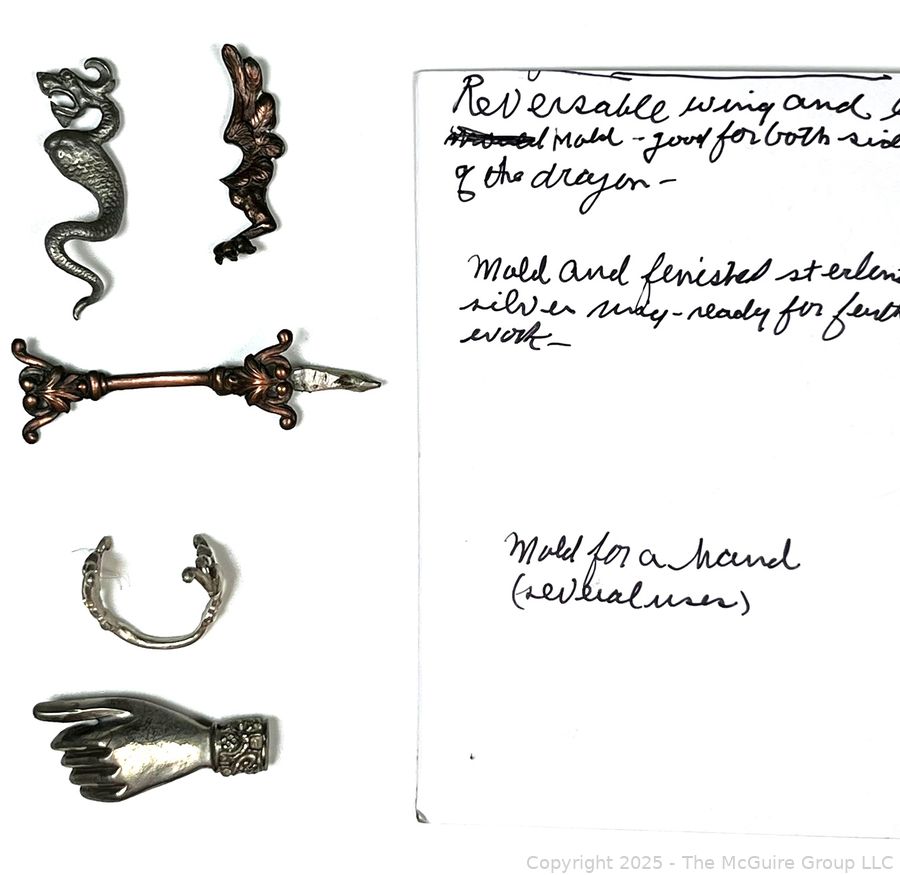 Reversable wing and
Mold - good for both side
of the dragon -
Mold and finished sterling
silver ready for furth
work -
Mold for a hand
(several uses)
Copyright 2025 - The McGuire Group LLC